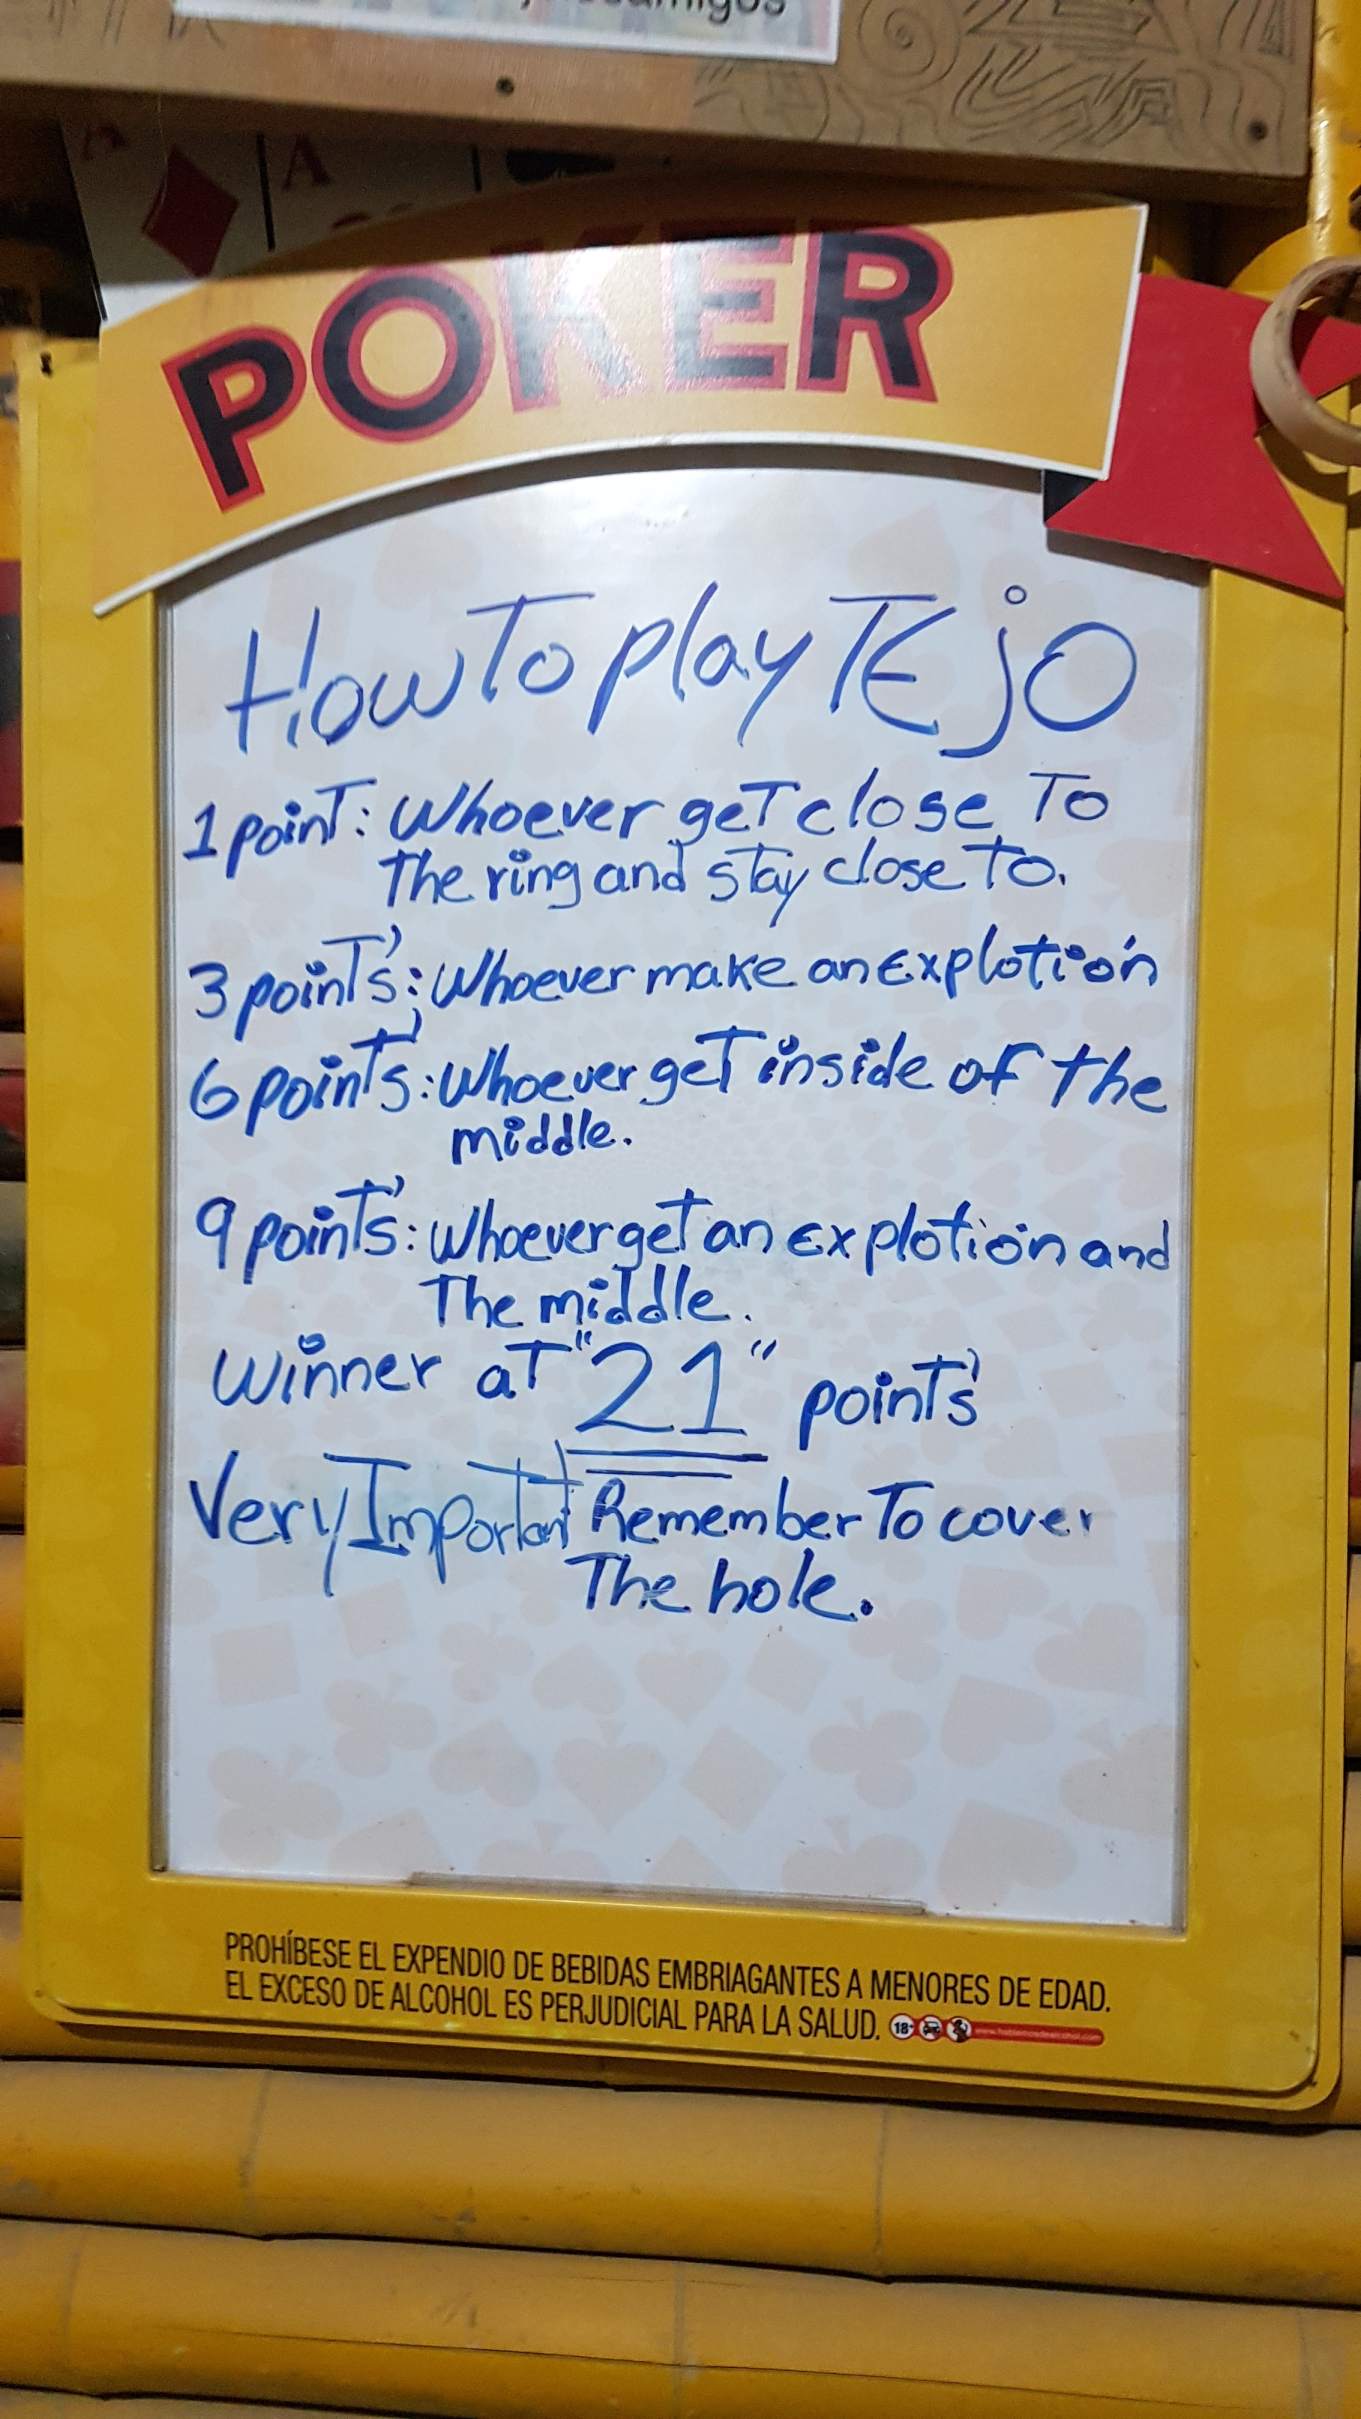 A
A
POKER
How To play TEjO
1 point: Whoever get close To
The ring and stay close To.
3 point's: Whoever make an Explotion
6 point's: Whoever get inside of the
middle.
9 point's: Whoever get an explotion and
The middle.
Winner at "21" point's
Very Important Remember To cover
The hole.
PROHÍBESE EL EXPENDIO DE BEBIDAS EMBRIAGANTES A MENORES DE EDAD.
EL EXCESO DE ALCOHOL ES PERJUDICIAL PARA LA SALUD. 18+